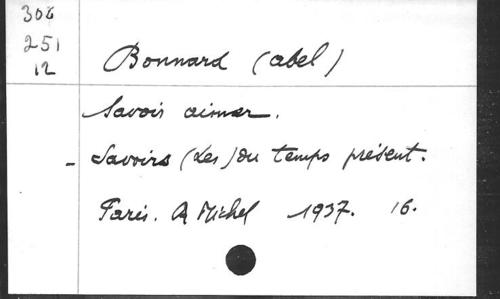 306
251
12
Bonnard (abel)
Savoir aimer.
- Savoirs (Les) du temps présent.
Paris. A Michel 1937. 16.